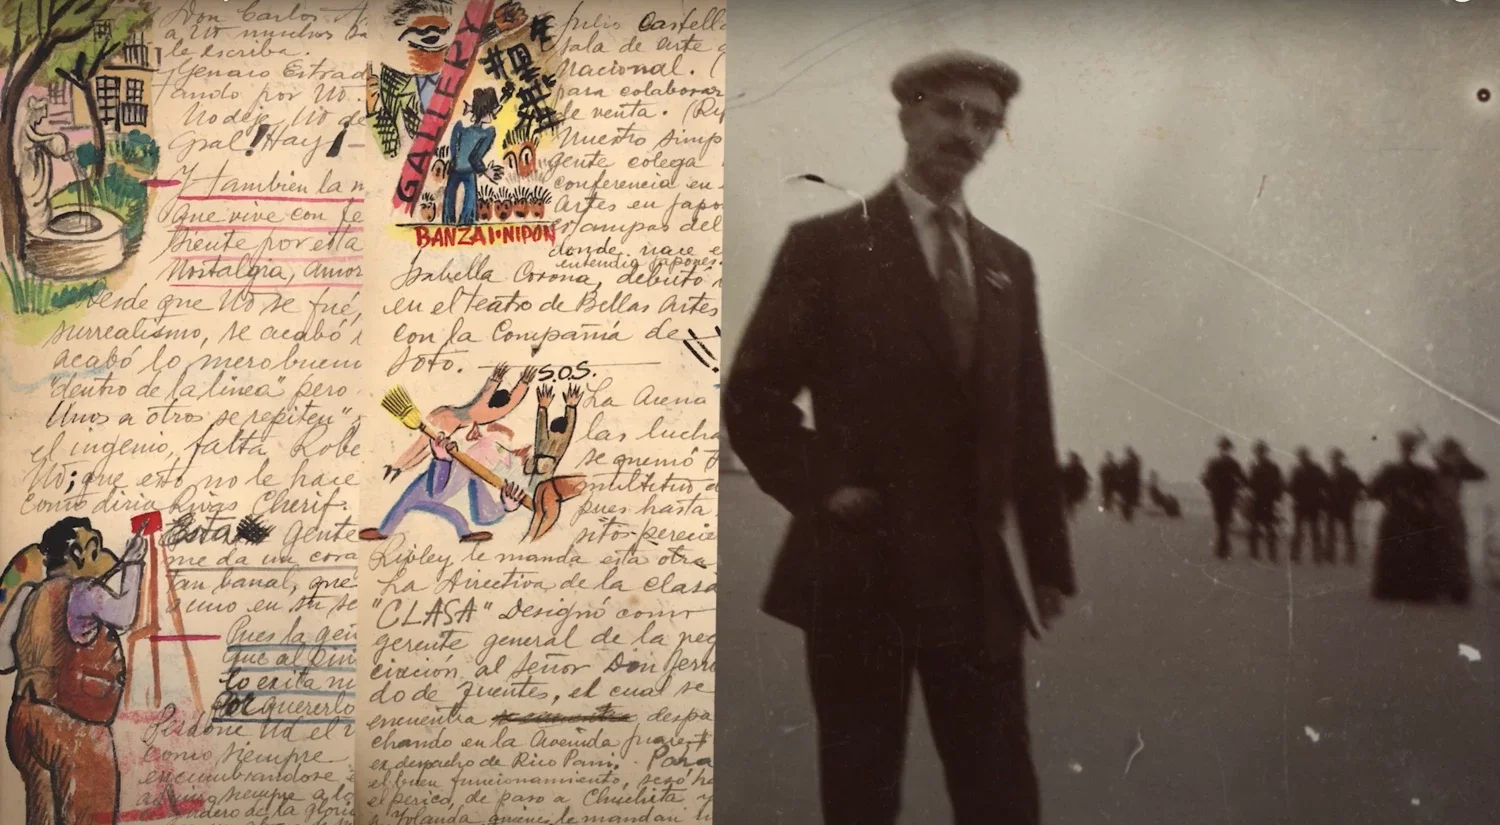 Don Carlos
a Ud muchos
le escriba.
Genaro Estrad
tando por Ud.
No deje Ud de
Gral! Hay ¡
Y también la
que vive con
siente por esta
Nostalgia, amor
Desde que Ud se fué,
surrealismo, se acabó
acabó lo mero buen
"dentro de la linea" pero
Unos a otros se repiten"
el ingenio, falta Robe
Ud; que esto no le hace
como diria Rivas Cherif.
Esta Gente
me da un cora
tan banal, que
sumo en su se
Pues la gen
que al Din
lo exita
Por quererlo
Perdone Ud el
como siempre
encumbrandose
siempre a lo
de la gloria
GALLERY
BANZAI·NIPON
Julio Castell
sala de arte
Nacional. (
para colaborar
de venta. (Rip
Nuestro simp
gente colega
conferencia en
Artes en Japo
estampas del
donde nace e
entendia japones.
Isabella Corona, debutó
en el teatro de Bellas Artes
con la Compañia de
Soto.
S.O.S.
La Arena
las lucha
se quemó
multitud
pues hasta
sitos perecie
Ripley le manda esta otra
La Directiva de la clasa
"CLASA" Designó como
gerente general de la neg
ciación al Señor Don Jerri
do de Fuentes, el cual se
encuentra despa
chando en la Avenida Juare
ex despacho de Rico Pani. Para
el buen funcionamiento, sesó ha
el perico, de paso a Chuchita y
a Yolanda quienes le mandan